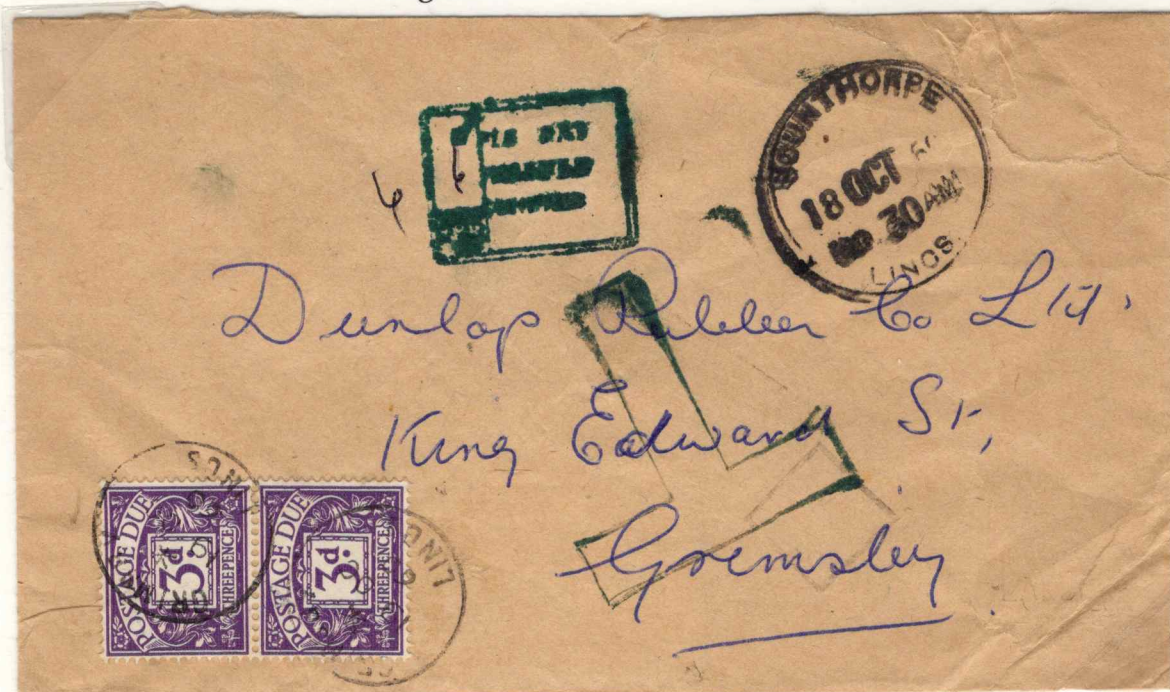 SCUNTHORPE
18 OCT
30 AM
LINCS
Dunlop Rubber Co Ltd.
King Edward St,
Grimsby
POSTAGE DUE
3d
THREEPENCE
POSTAGE DUE
3d
THREEPENCE
LINCS